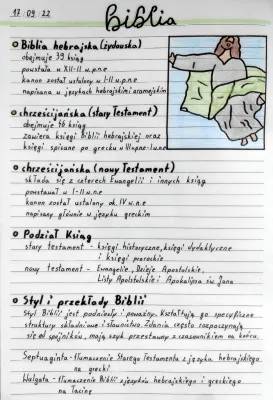 17/09/22
Biblia
Biblia hebrajska (żydowska)
obejmuje 39 ksiąg
powstała w XII-II w.p.n.e
kanon został ustalony w I-II w.n.e
napisana w językach hebrajskim i aramejskim
chrześcijańska (stary Testament)
obejmuje 46 ksiąg
zawiera księgi Biblii hebrajskiej oraz
księgi spisane po grecku w III w.p.n.e-I w.n.e
chrześcijańska (nowy Testament)
składa się z czterech Ewangelii i innych ksiąg
powstawał w I-II w.n.e
kanon został ustalony ok. IV w.n.e
napisany głównie w języku greckim
Podział Ksiąg
stary testament - księgi historyczne, księgi dydaktyczne
i księgi prorockie
nowy testament - Ewangelie, Dzieje Apostolskie,
Listy Apostolskie i Apokalipsa św Jana
Styl i przekłady Biblii
Styl Biblii jest podniosły i poważny. Kształtują go specyficzne
struktury składniowe i słownictwo. Zdania często rozpoczynają
się od spójników, mają szyk przestawny z czasownikiem na końcu.
Septuaginta - tłumaczenie Starego Testamentu z języka hebrajskiego
na grecki
Wulgata - tłumaczenie Biblii z języków hebrajskiego i greckiego
na łacinę